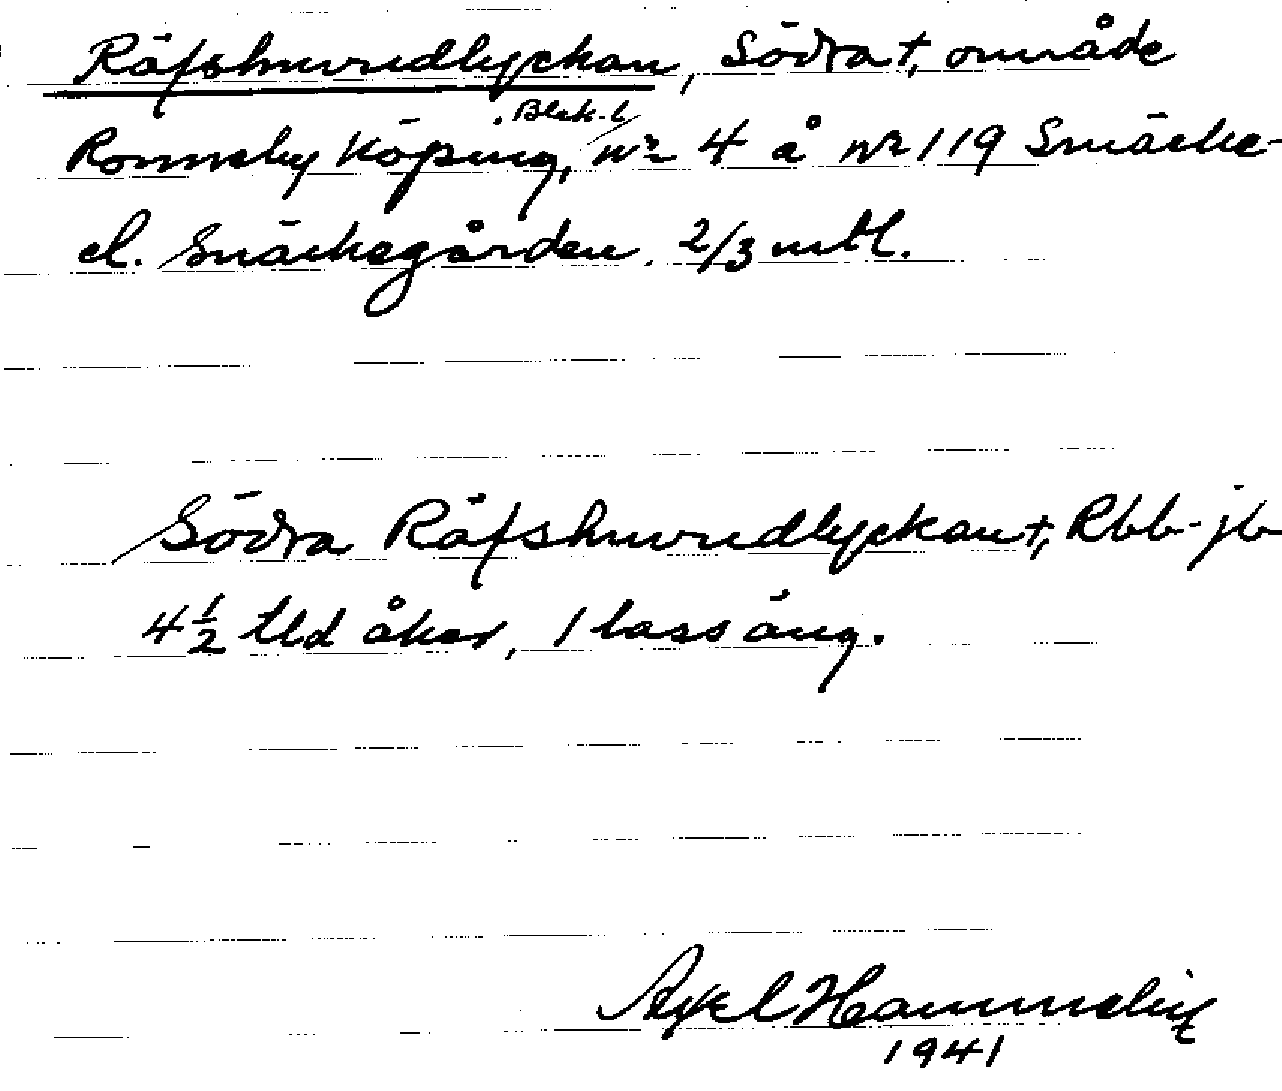 Räfshuvudlyckan, Södra †, område
Blek. l.
Ronneby Köping, nr 4 å nr 119 Snäcke-
el. Snäckegården. 2/3 mtl.
Södra Räfshuvudlyckan †, Rbb-jb
4 1/2 tld åker, 1 lass äng.
Axel
1941